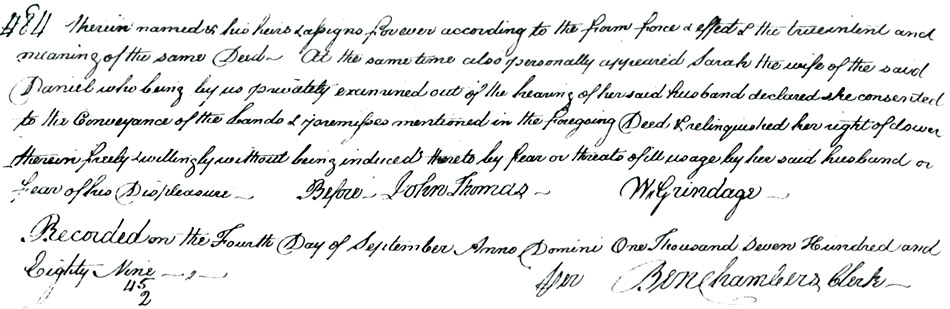 484 therein named & his heirs & assigns forever according to the form force & effect & the true intent and
meaning of the same Deed – At the same time also personally appeared Sarah the wife of the said
Daniel who being by us privately examined out of the hearing of her said husband declared she consented
to the Conveyance of the Lands & premisses mentioned in the foregoing Deed & relinquished her right of dower
therein freely & willingly without being induced thereto by fear or threats of ill usage by her said husband or
fear of his Displeasure – Before – John Thomas – Wm Grindage –
Recorded on the Fourth Day of September Anno Domini One Thousand Seven Hundred and
Eighty Nine
45
2
Per Ben Chambers Clerk –